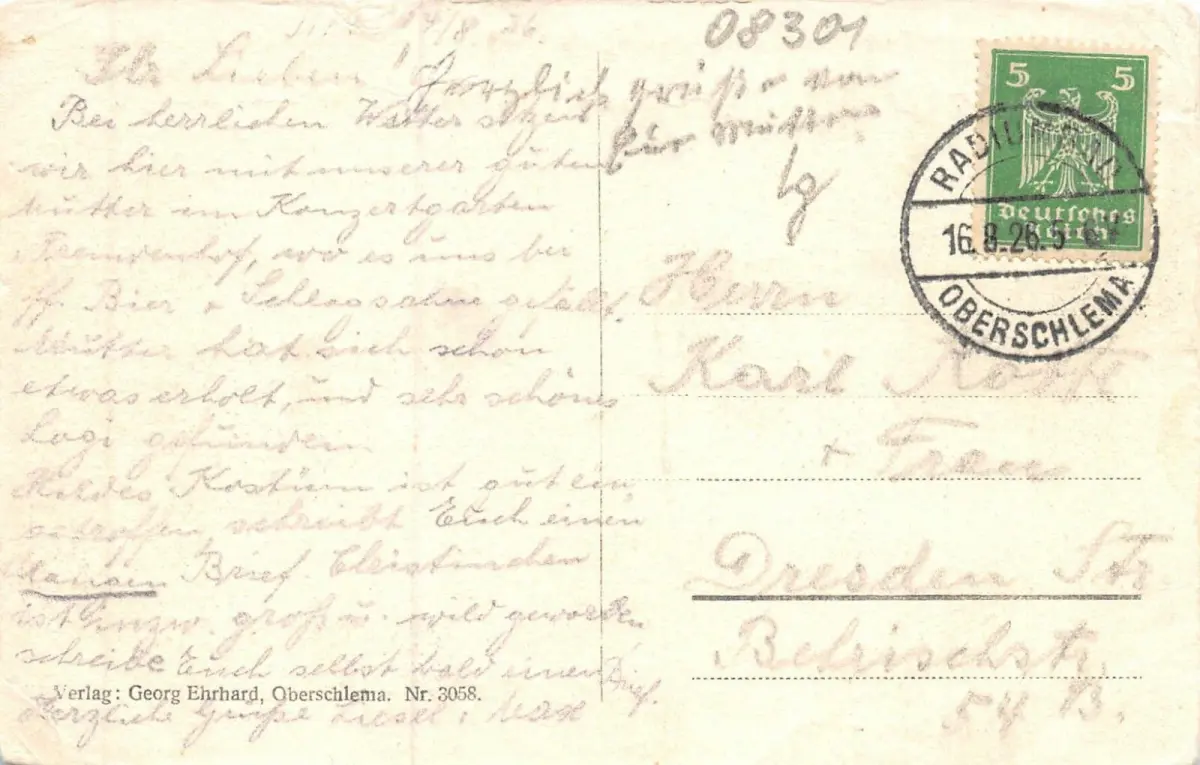 14/8 26.
Ihr Lieben!
Bei herrlichem Wetter sitzen
wir hier mit unserer guten
Mutter im Konzertgarten
Fremdenhof, wo es uns bei
ff. Bier + Schlagsahne gefällt.
Mutter hat sich schon
etwas erholt, und sehr schönes
Logi gefunden
Hildes Kostüm ist gut ein
getroffen, schreibt Euch einen
langen Brief.
ist inzw. groß u. wild geworden,
schreibe Euch selbst bald einen Brief.
Herzliche Grüße Liesel + Max
Verlag: Georg Ehrhard, Oberschlema. Nr. 3058.
08301
Herzlich grüßt von
Mutter
5 5
Deutsches
Reich
RADIUMBAD
16.8.26.5
OBERSCHLEMA
Herrn
Karl
+ Frau
Dresden Str.
54 B.